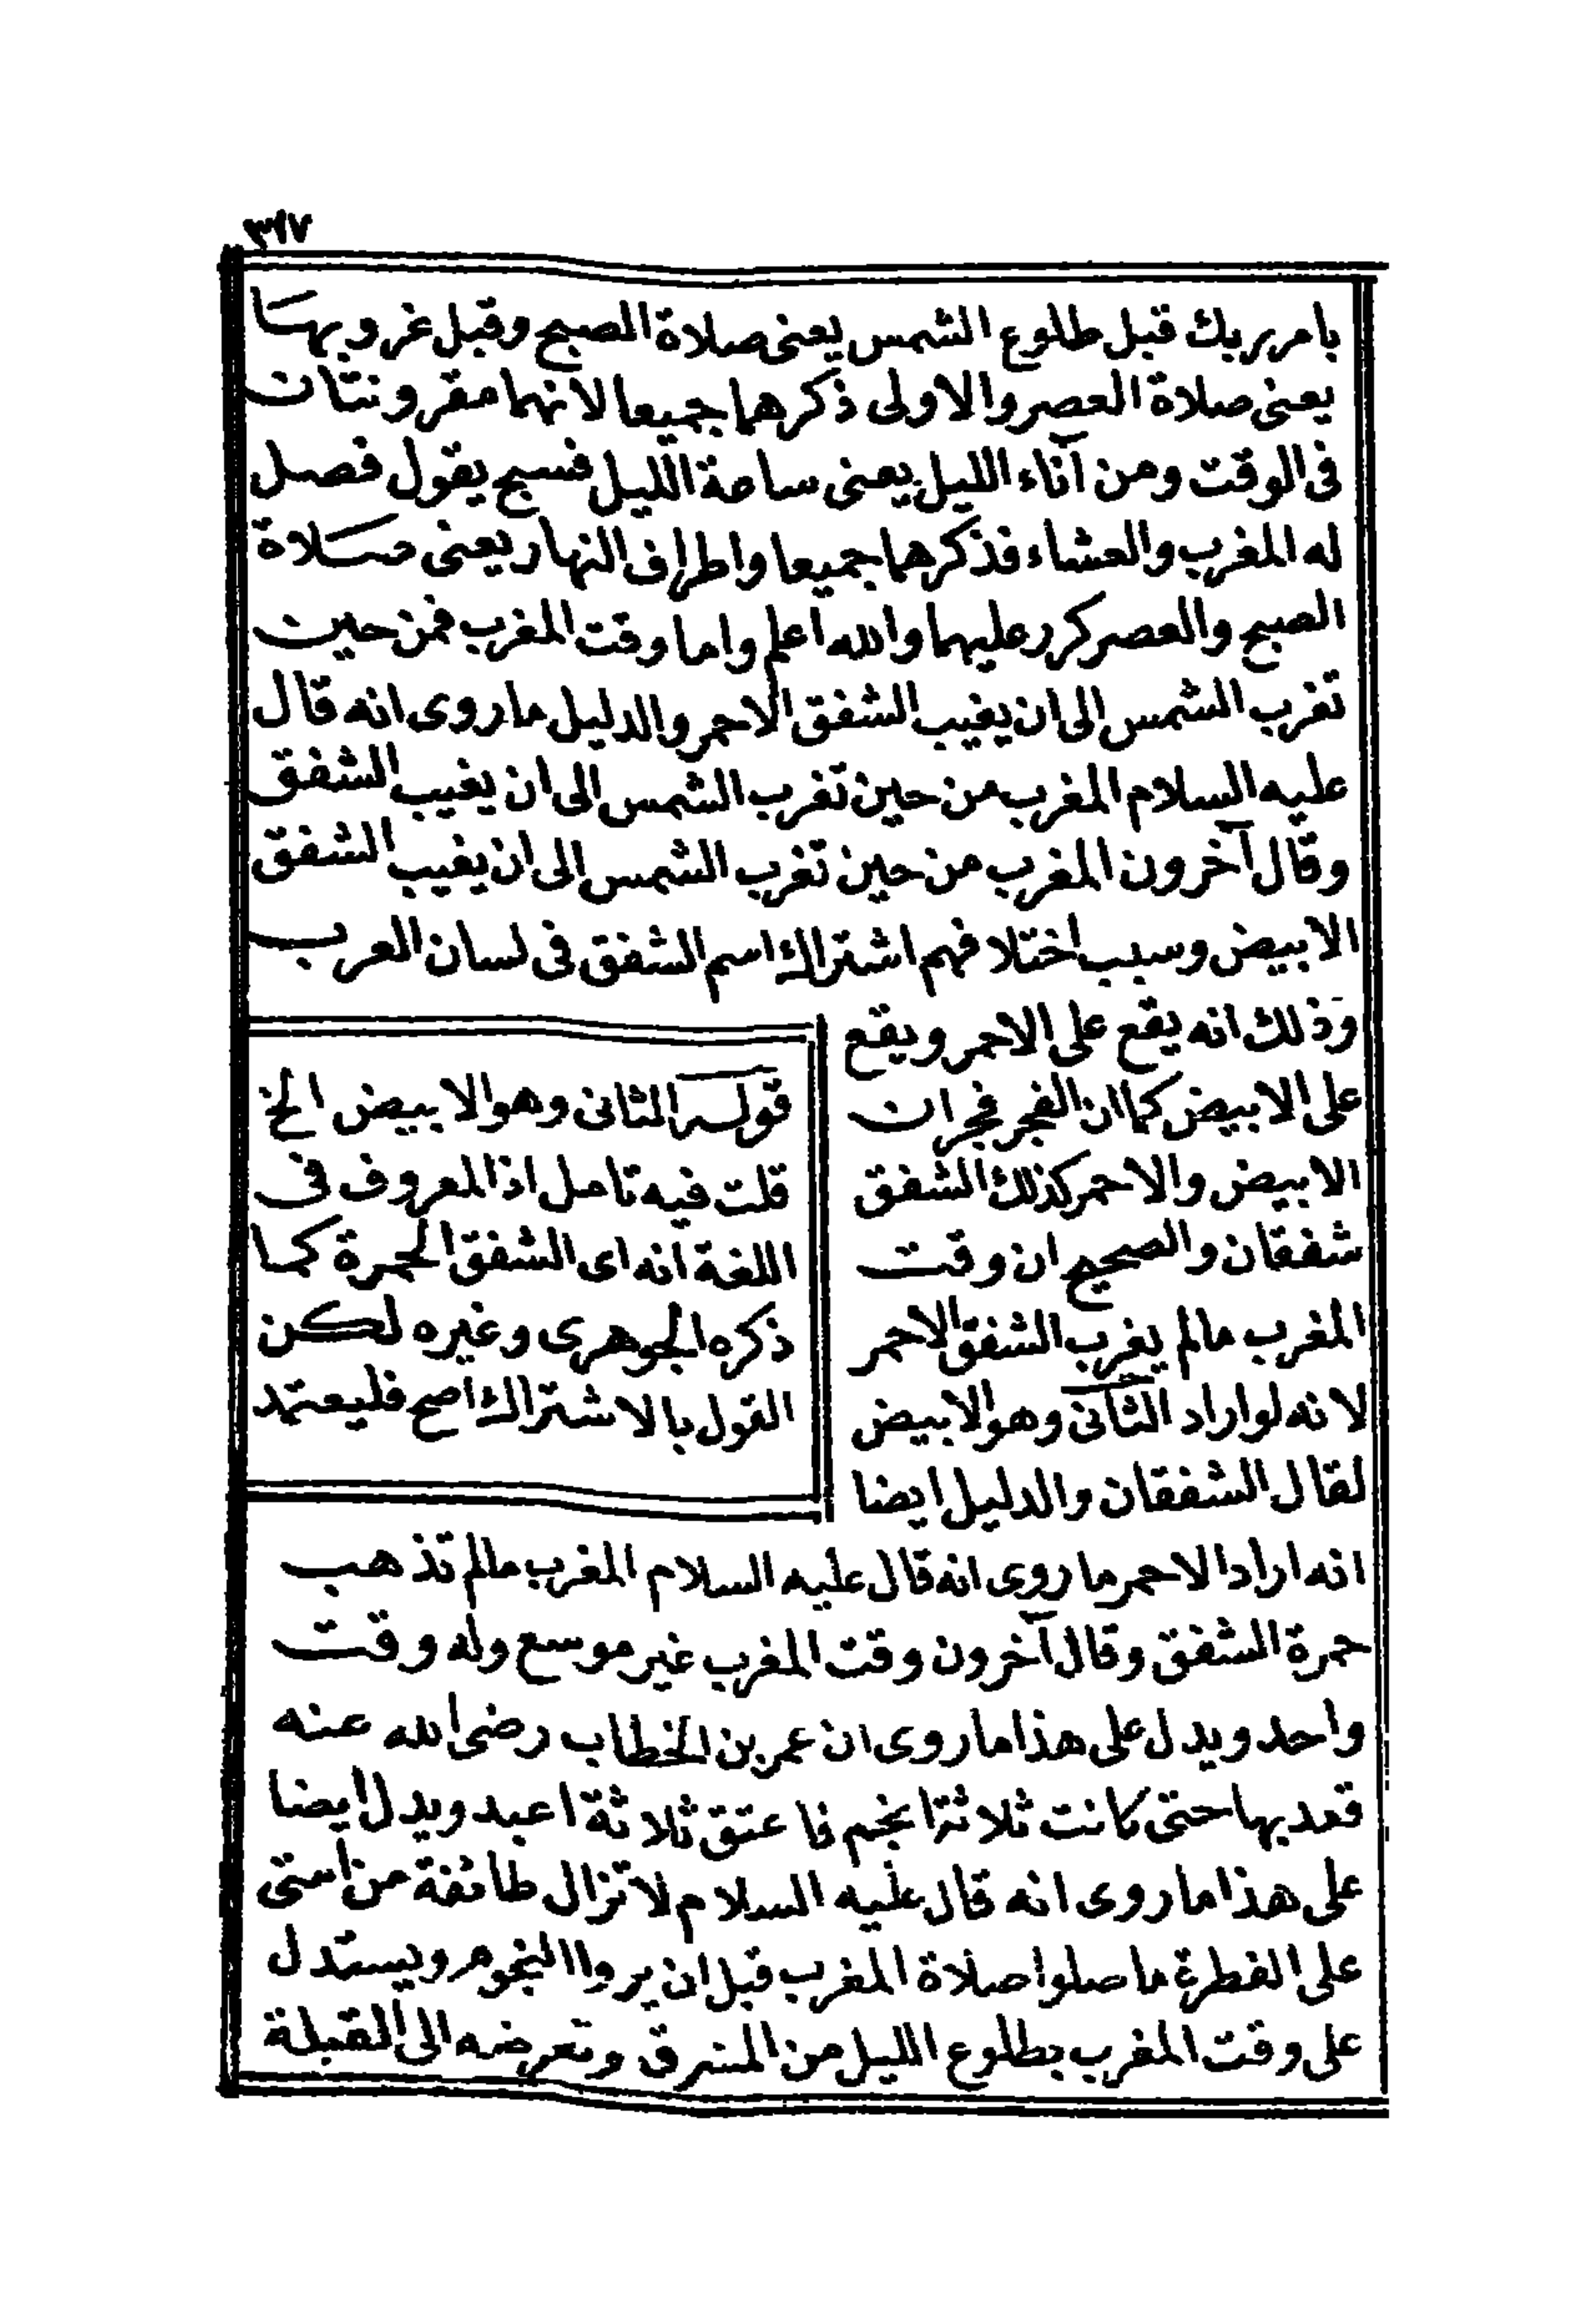 ٣١٧
بامر ربك قبل طلوع الشمس يعنى صلاة الصبح وقبل غروبها
يعنى صلاة العصر والاولى ذكرهما جميعا لانهما مقرونتان
فى الوقت ومن آناء الليل يعنى ساعة الليل فسبح يقول فصل
له المغرب والعشاء فذكرهما جميعا واطراف النهار يعنى صلاة
الصبح والعصر كرر عليهما والله اعلم واما وقت المغرب فمن حين
تغرب الشمس الى ان يغيب الشفق الاحمر والدليل ما روى انه قال
عليه السلام المغرب من حين تغرب الشمس الى ان يغيب الشفق
وقال آخرون المغرب من حين تغرب الشمس الى ان يغيب الشفق
الابيض وسبب اختلافهم اشتراك اسم الشفق فى لسان العرب
وذلك انه يقع على الاحمر ويقع
على الابيض كما ان الفجر فجران
الابيض والاحمر كذلك الشفق
شفقان والصحيح ان وقت
المغرب مالم يغرب الشفق الاحمر
لانه لو اراد الثانى وهو الابيض
لقال الشفقان والدليل ايضا
قوله الثانى وهو الابيض الخ
قلت فيه تامل اذ المعروف فى
اللغة انه اى الشفق الحمرة كما
ذكره الجوهرى وغيره لكن
القول بالاشتراك اصح فليعتمد
انه اراد الاحمر ما روى انه قال عليه السلام المغرب مالم تذهب
حمرة الشفق وقال آخرون وقت المغرب غير موسع وله وقت
واحد ويدل على هذا ما روى ان عمر بن الخطاب رضى الله عنه
قعد بها حتى كانت ثلاثة انجم فاعتق ثلاثة اعبد ويدل ايضا
على هذا ما روى انه قال عليه السلام لا تزال طائفة من امتى
على الفطرة ما صلوا صلاة المغرب قبل ان يروا النجوم ويستدل
على وقت المغرب بطلوع الليل من المشرق وتعرضه الى القبلة